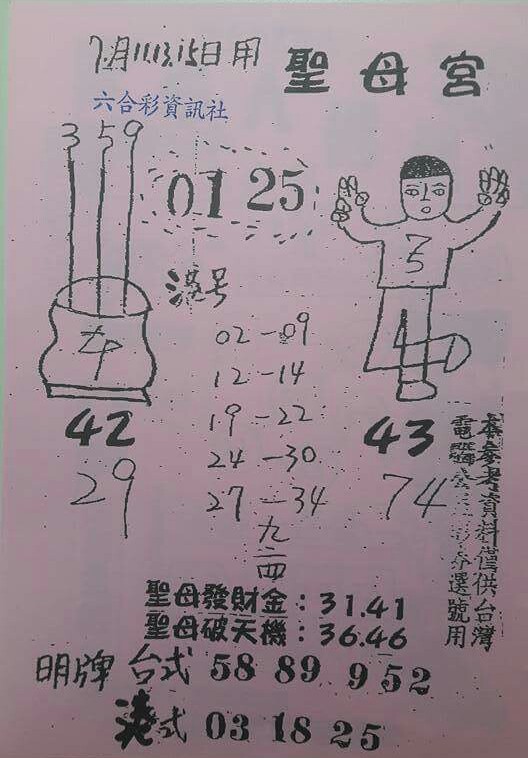 7月11.13.15日用
聖母宮
六合彩資訊社
3 5 9
01 25
港号
02-09
12-14
19-22
24-30
27-34
九二四
42
29
75
43
74
本參考資料僅供台灣
電腦 選號用
聖母發財金:31.41
聖母破天機:36.46
明牌 台式 58 89 952
港式 03 18 25